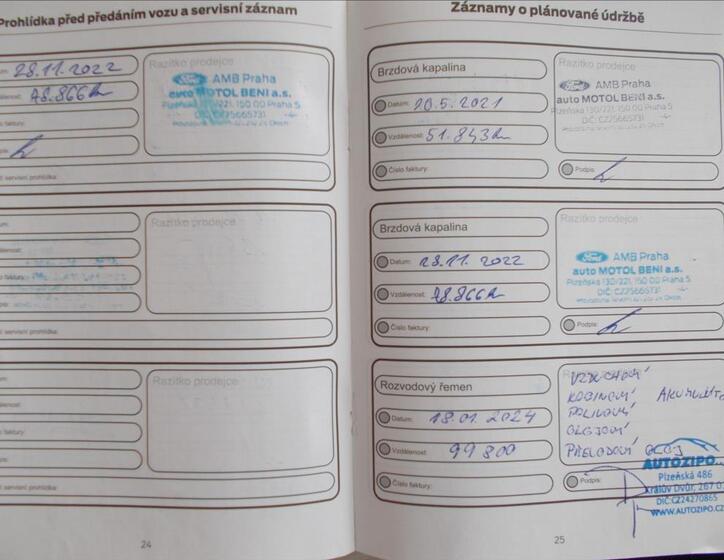 Prohlídka před předáním vozu a servisní záznam
28.11.2022
Razítko prodejce
78.866
Ford AMB Praha
auto MOTOL BENI a.s.
Plzeňská 130/221, 150 00 Praha 5
DIČ: CZ25665731
faktury:
servisní prohlídka:
Razítko prodejce
faktury:
servisní prohlídka:
Razítko prodejce
faktury:
servisní prohlídka:
24
Záznamy o plánované údržbě
Brzdová kapalina
Razítko prodejce
Datum: 20.5.2021
Ford AMB Praha
auto MOTOL BENI a.s.
Plzeňská 130/221, 150 00 Praha 5
DIČ: CZ25665731
Vzdálenost: 51.843
Číslo faktury:
Podpis:
Brzdová kapalina
Razítko prodejce
Datum: 28.11.2022
Ford AMB Praha
auto MOTOL BENI a.s.
Plzeňská 130/221, 150 00 Praha 5
DIČ: CZ25665731
Vzdálenost: 78.866
Číslo faktury:
Podpis:
Rozvodový řemen
VZDUCHOVÝ
KABINOVÝ
PALIVOVÝ
OLEJOVÝ
PŘEVODOVÝ OLEJ
Datum: 18.01.2024
Vzdálenost: 99 800
Číslo faktury:
Podpis:
AUTOZIPO
Plzeňská 486
Králův Dvůr, 267 0
DIČ:CZ24270865
WWW.AUTOZIPO.CZ
25